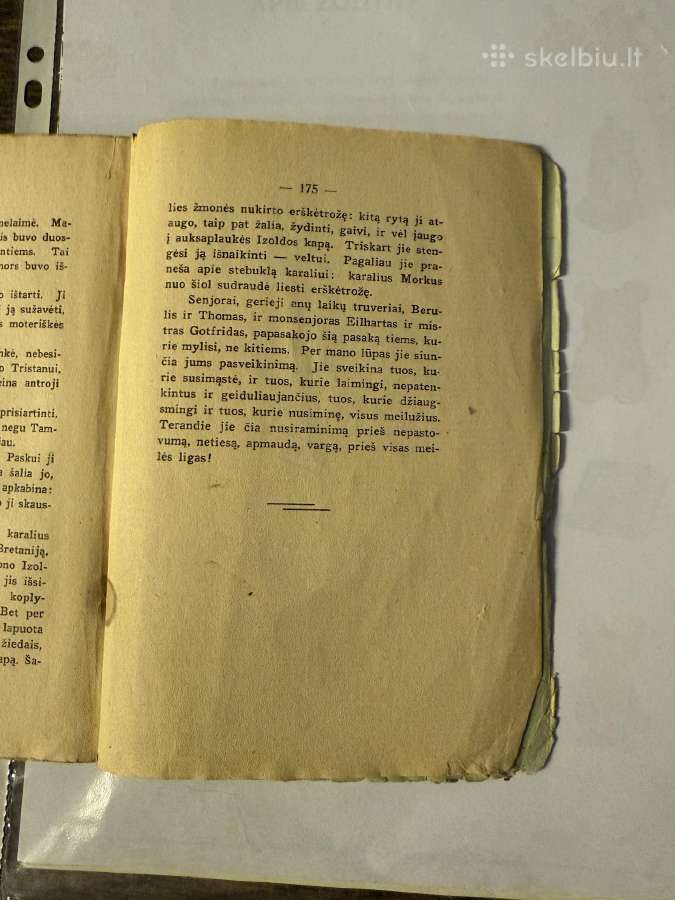 skelbiu.lt
nelaimė. Ma-
is buvo duos-
ntiems. Tai
nors buvo iš-
o ištarti. Ji
i ją sužavėti,
s moteriškės
nkė, nebesi-
o Tristanui,
eina antroji
prisiartinti.
negu Tam-
iau.
Paskui ji
a šalia jo,
apkabina:
o ji skaus-
karalius
Bretaniją,
ono Izol-
jis išsi-
koply-
Bet per
lapuota
žiedais,
apą. Ša-
— 175 —
lies žmonės nukirto erškėtrožę: kitą rytą ji at-
augo, taip pat žalia, žydinti, gaivi, ir vėl įaugo
į auksaplaukės Izoldos kapą. Triskart jie sten-
gėsi ją išnaikinti — veltui. Pagaliau jie pra-
neša apie stebuklą karaliui: karalius Morkus
nuo šiol sudraudė liesti erškėtrožę.
Senjorai, gerieji anų laikų truveriai, Beru-
lis ir Thomas, ir monsenjoras Eilhartas ir mis-
tras Gotfridas, papasakojo šią pasaką tiems, ku-
rie mylisi, ne kitiems. Per mano lūpas jie siun-
čia jums pasveikinimą. Jie sveikina tuos, ku-
rie susimąstė, ir tuos, kurie laimingi, nepaten-
kintus ir geiduliaujančius, tuos, kurie džiaug-
smingi ir tuos, kurie nusiminę, visus meilužius.
Terandie jie čia nusiraminimą prieš nepasto-
vumą, netiesą, apmaudą, vargą, prieš visas mei-
lės ligas!